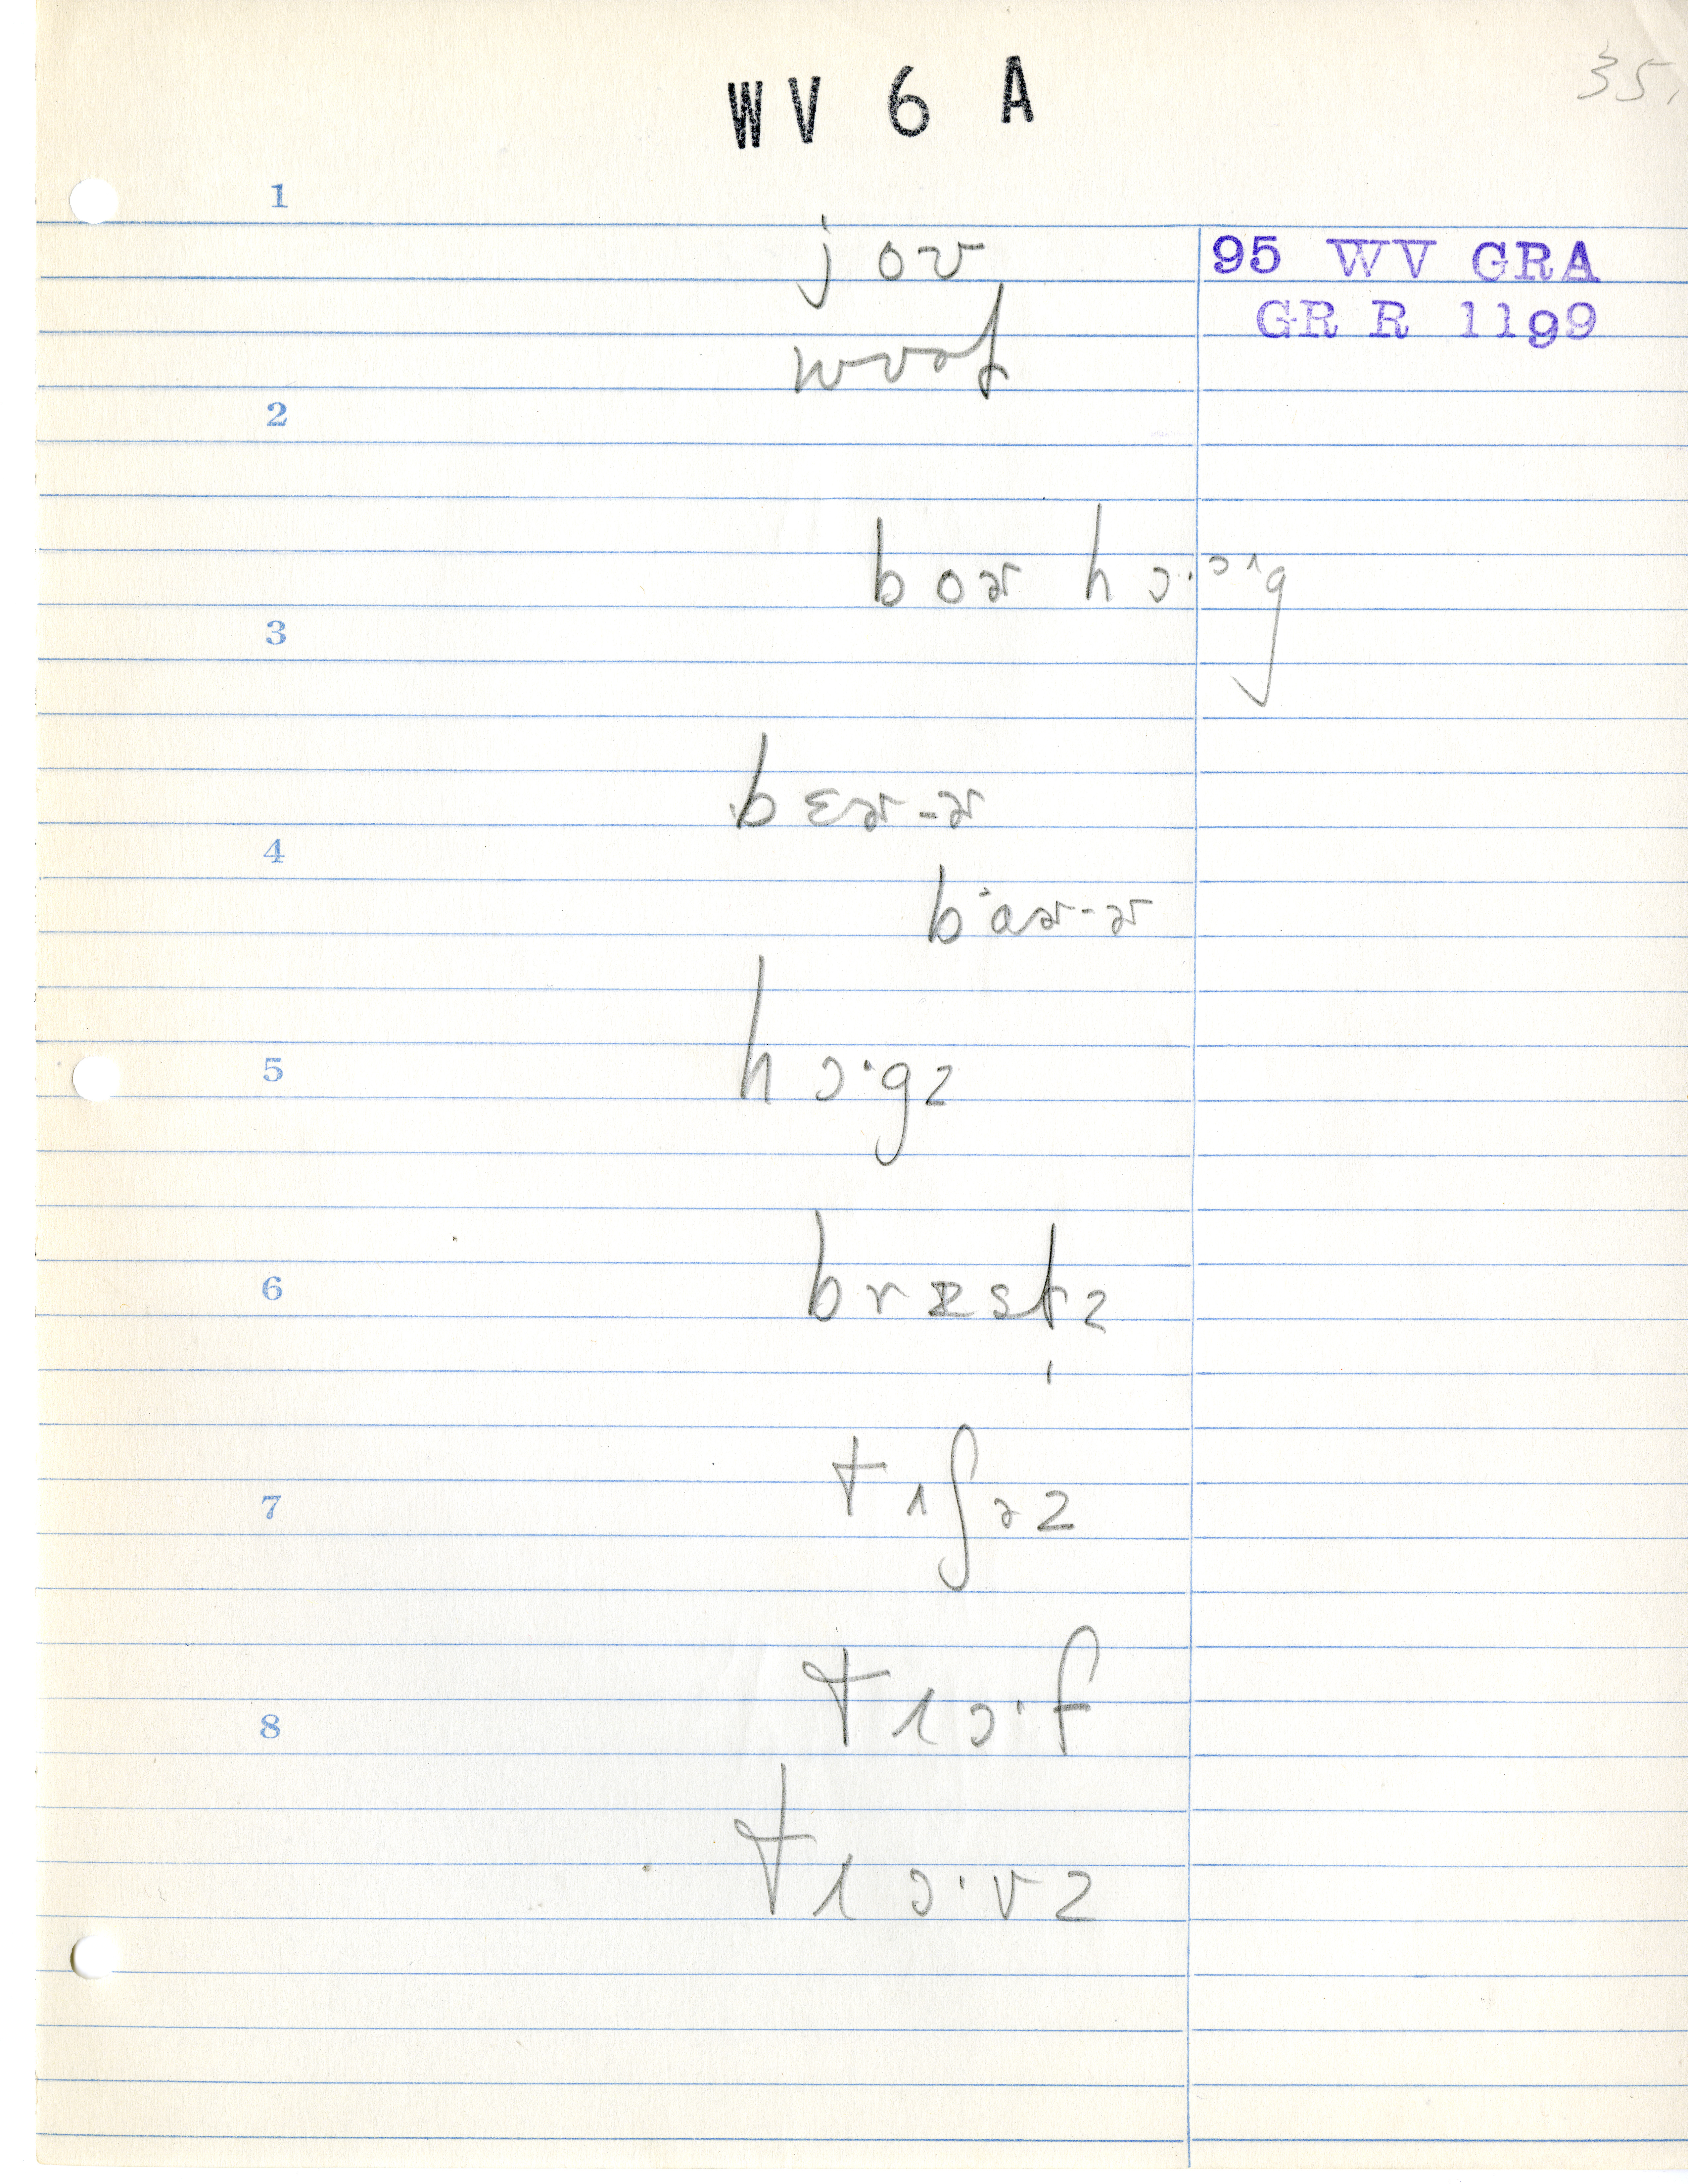 WV 6 A
35.
1
joʊ
95 WV GRA
GR R 1199
2
boɚ hɔ·ɔ^ɪg
3
bɛɚ-ɚ
4
b'aɚ-ɚ
5
hɔ·gz
6
bræstz
7
tɪʃəz
tɪɔ·f
8
tɪɔ·vz